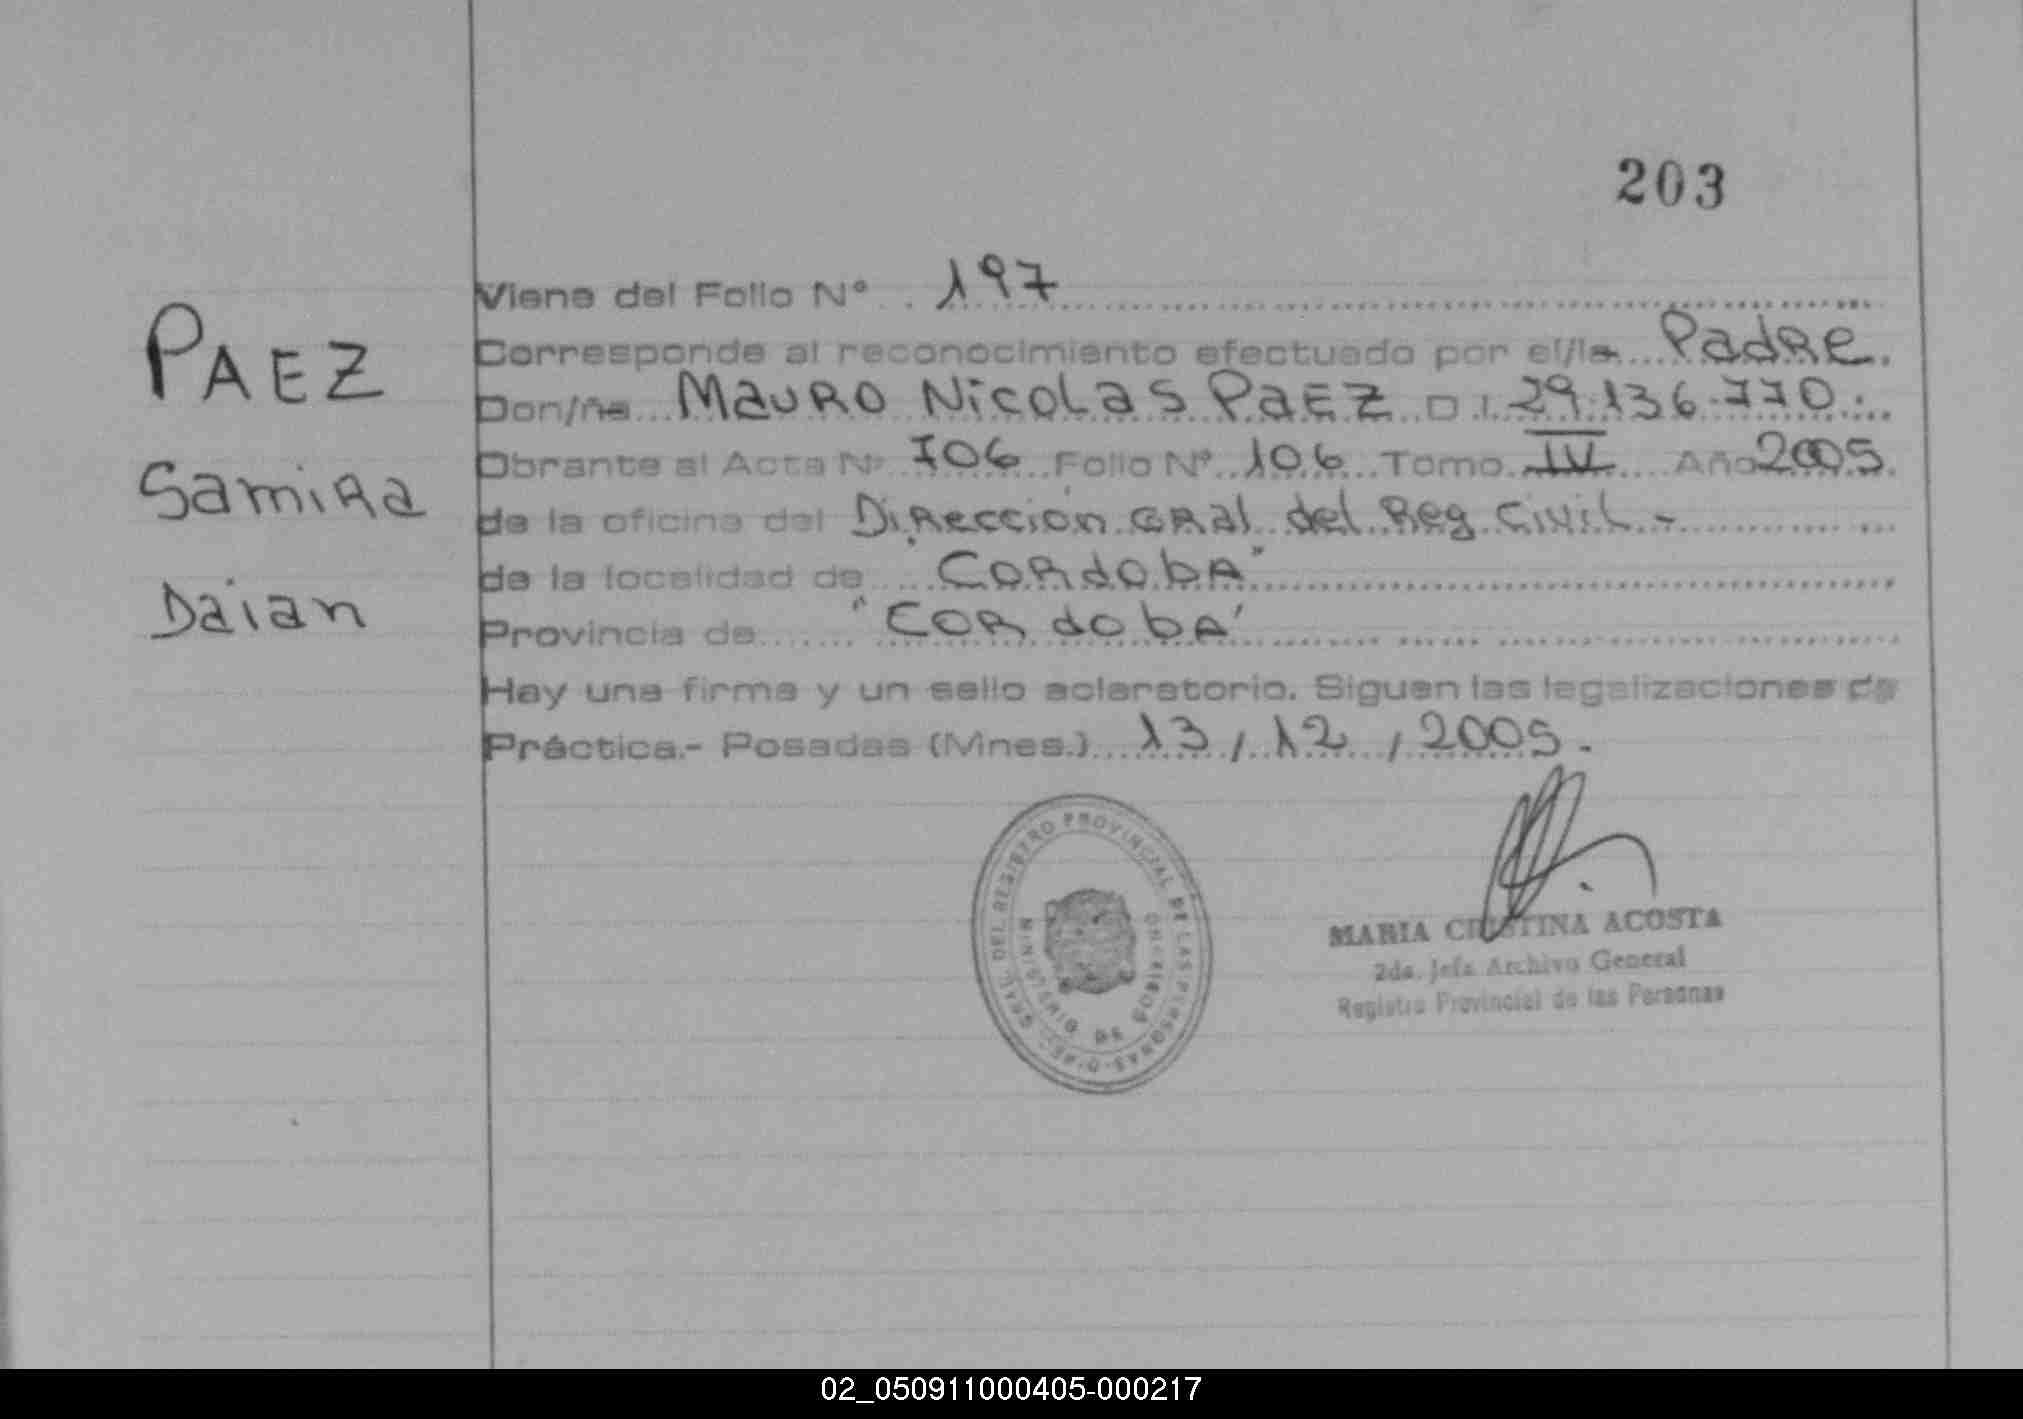 203
Viene del Folio Nº 197
Corresponde al reconocimiento efectuado por el/la Padre.
Don/ña Mauro Nicolas Paez D.I. 29.136.770.
Obrante al Acta Nº 706 Folio Nº 106 Tomo IV Año 2005.
de la oficina del Dirección Gral del Reg Civil -
de la localidad de "Cordoba"
Provincia de "Cordoba"
Hay una firma y un sello aclaratorio. Siguen las legalizaciones de
Práctica.- Posadas (Mnes.) 13/12/2005.
PAEZ
Samira
Daian
DEL REGISTRO PROVINCIAL DE LAS PERSONAS
MINISTERIO DE GOBIERNO
MARIA CRISTINA ACOSTA
2da. Jefa Archivo General
Registro Provincial de las Personas
02_050911000405-000217